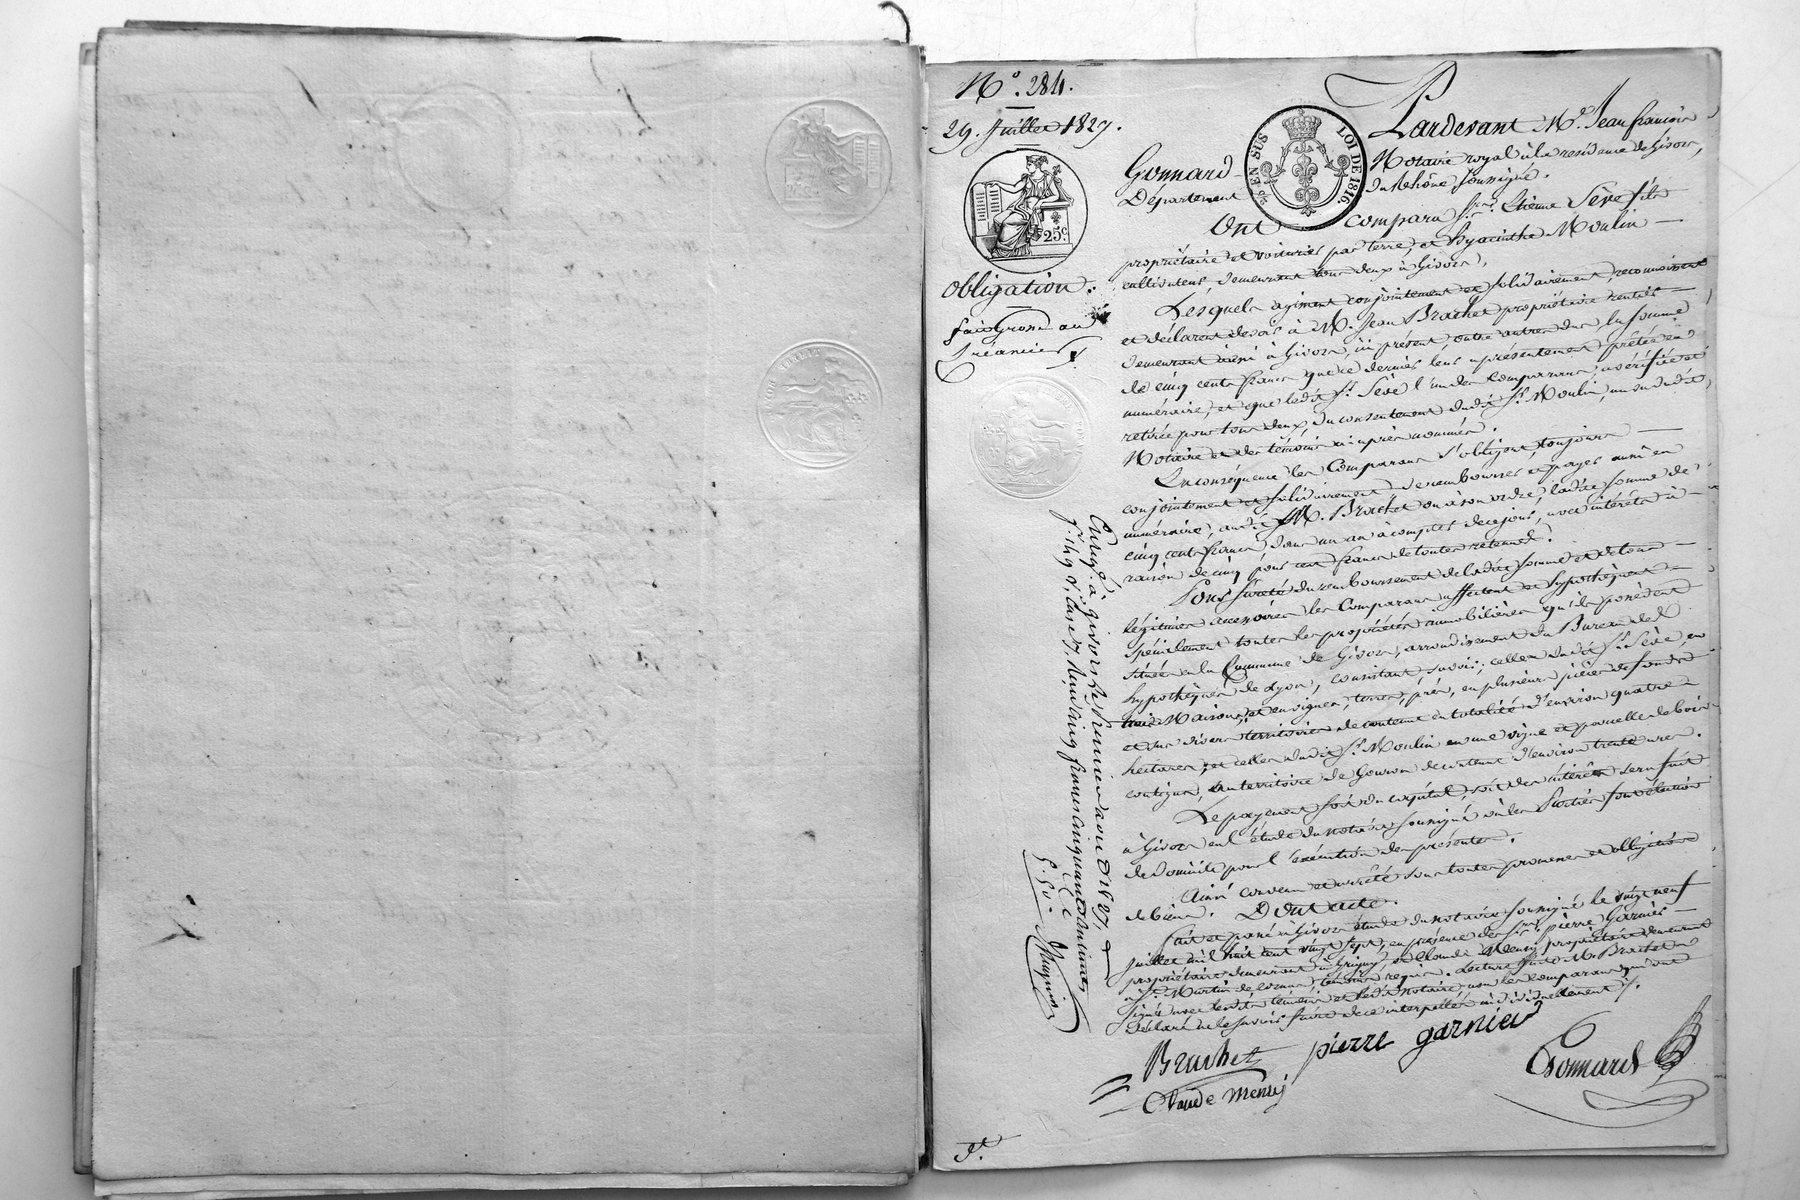 N.° 284.
29. Juillet 1827.
25.c
Obligation.
fait Grosse au
Créancier
EN SUS LOI DE 1816.
Pardevant M.e Jean françois
Gonnard Notaire royal à la residence de Givors,
Département du Rhône soussigné.
Ont comparu S.rs Etienne Sève fils
propriétaire et voiturier par terre, et hyacinthe Moulin
cultivateur, demeurant tous deux à Givors,
Lesquels agissant conjointement et solidairement, reconnaissent
et déclarent devoir à M. Jean Brachet propriétaire rentier
demeurant aussi à Givors, ici présent outre autres dus, la somme
de cinq cents francs que ce dernier leur a présentement prêtée en
numéraire, et que ledit S.r Sève l'un des Comparans, a vérifiée et
retirée pour tous deux, du consentement dudit S.r Moulin, au vu dudit
Notaire et des témoins ci après nommés.
En conséquence les Comparans s'obligent, toujours
conjointement et solidairement, de rembourser et payer aussi en
numéraire, audit M. Brachet ou à son ordre, ladite somme de
cinq cents francs dans un an à compter de ce jour, avec intérêts à
raison de cinq pour cent francs de toutes retenues.
Pour sûreté du remboursement de ladite somme et de tous
légitimes accessoires les Comparans affectent et hypothèquent
spécialement toutes les propriétés immobilières qu'ils possèdent
situées en la Commune de Givors, arrondissement du Bureau des
hypothèques de Lyon, consistant, savoir; celles dudit S.r Sève en
trois Maisons, et en vignes, terres, prés, en plusieurs pièces de fonds
et sur divers territoires de contenue en totalité d'environ quatre
hectares, et celles dudit S.r Moulin en une vigne et parcelle de bois
contigus, au territoire de Gouron de contenue d'environ trente ares.
Le payement soit du capital, soit des intérêts sera fait
à Givors en l'étude du notaire soussigné où les Parties font élection
de Domicile pour l'exécution des présentes.
Ainsi convenu et arrêté sous toutes promesses et obligations
de biens. Dont acte.
fait et passé à Givors étude du notaire soussigné le vingt neuf
juillet mil huit cent vingt sept, en présence des S.rs pierre Garnier
propriétaire demeurant à Grigny, et Claude Mensy propriétaire demeurant
à S.t Martin de cornas témoins requis. Lecture faite M. Brachet a
signé avec lesdits témoins et ledit notaire, non les comparans qui ont
déclaré ne le savoir faire de ce interpellés individuellement.
Brachet pierre garnier
Claude Mensy
Gonnard
Enreg.é à Givors le trente août 1827,
f.° 149 v.° case 7, Reçu cinq francs cinquante centimes